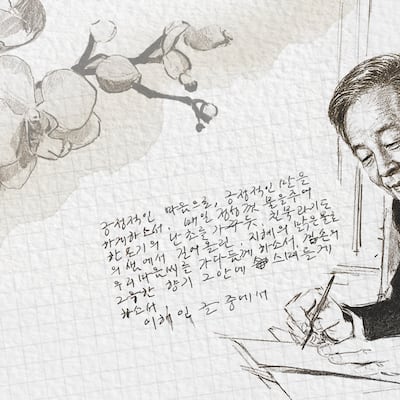 긍정적인 마음으로, 긍정적인 말을
가지하소서 매일 정성껏 물을주어
한포기의 난초를 가꾸듯, 침묵과기도
의샘에서 길어올린 지혜의 맑은물로
우리마음씨를 가다듬게 하소서. 겸손의
그윽한 향기 그안에 스며들게
하소서
이해인 글 중에서